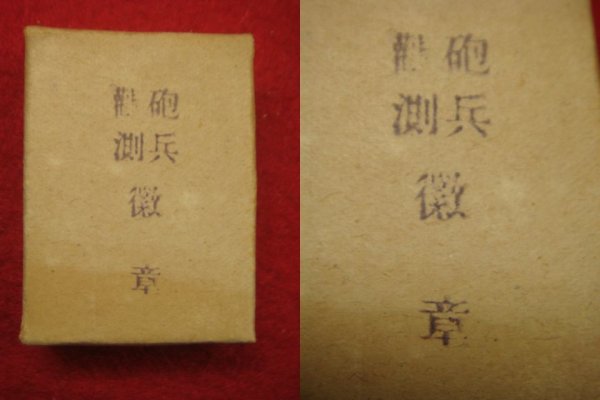 砲兵
觀測
徽章
砲兵
觀測
徽章